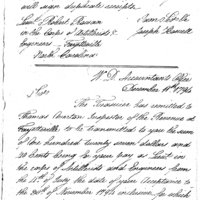 will sign duplicate receipts.
Lieut. Robert Rowan
in the Corps of Artillerists &
Engineers, Fayetteville
North Carolina
Joseph Howell
W. D. Accountant's Office
December 11th 1795
Sir
The Treasurer has remitted to
Thomas Overton Inspector of the Revenue at
Fayetteville to be transmitted to you the sum
of One hundred twenty seven dollars and
20 Cents being for your pay as Lieut. in
the corps of Artillerists and Engineers from
July the date of your Acceptance to
the 30th of November 1795 inclusive for which